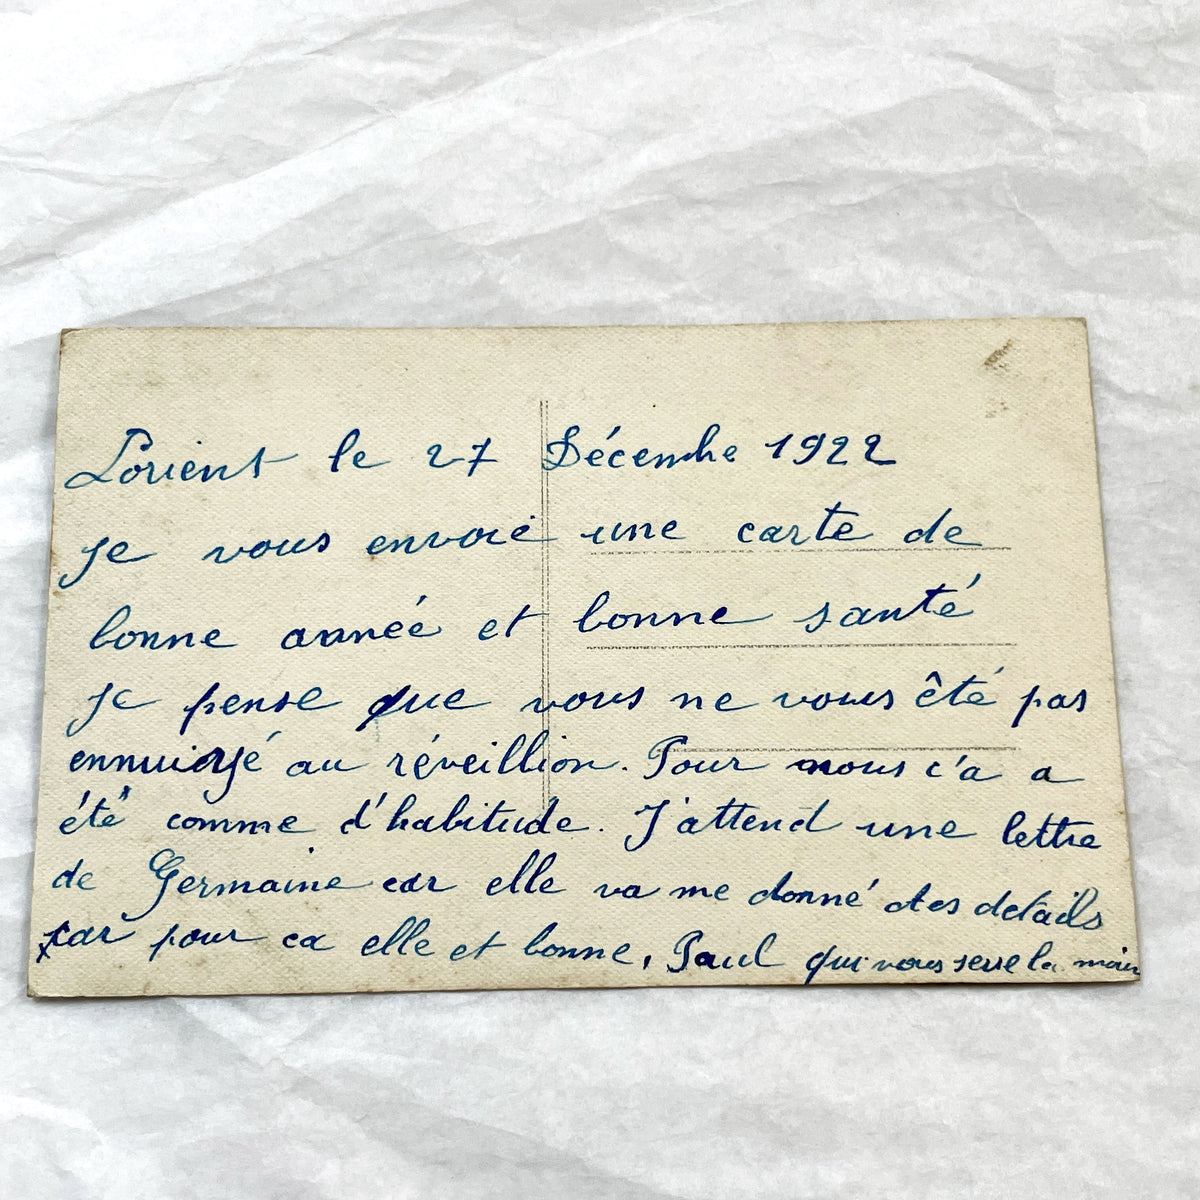 Lorient le 27 Décembre 1922
je vous envoie une carte de
bonne année et bonne santé
je pense que vous ne vous êté pas
ennuioyé au réveillion. Pour nous c'a a
été comme d'habitude. J'attend une lettre
de Germaine car elle va me donné des details
car pour ca elle et bonne. Paul qui vous serre la main